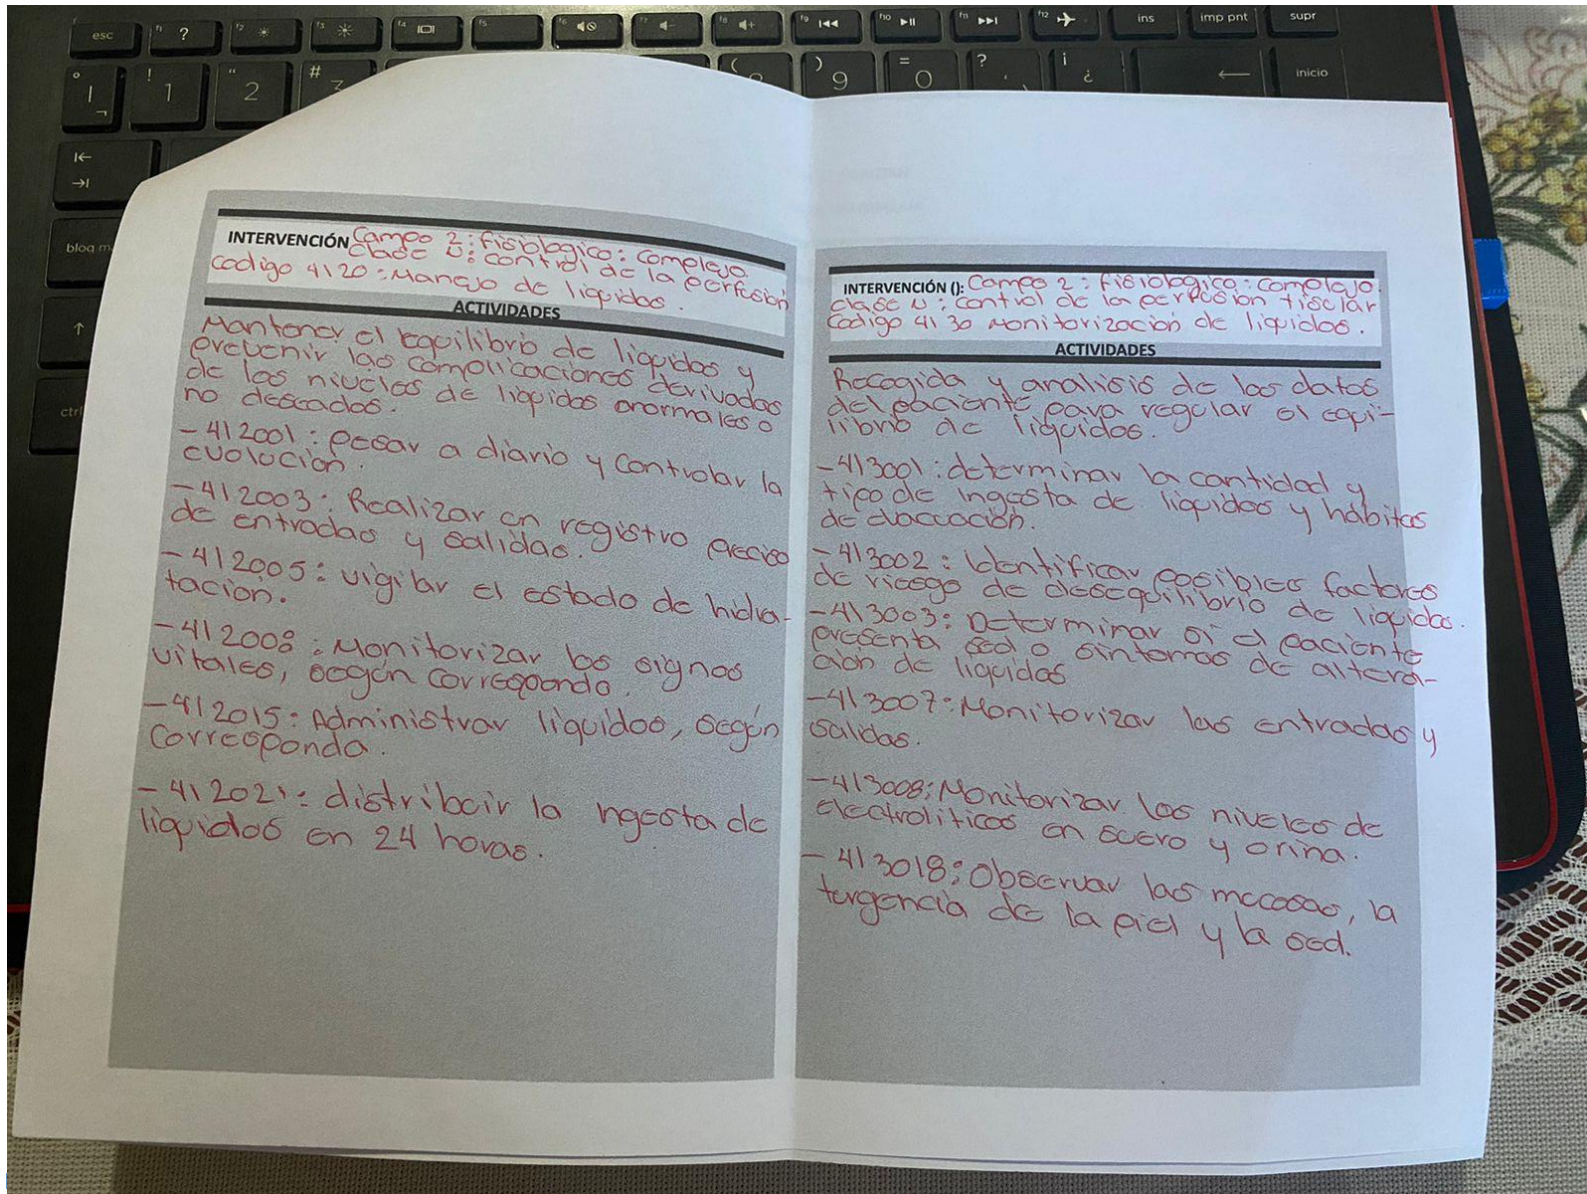 esc
f1 ?
f2
f3
f4
f5
f6
f7
f8
f9
f10
f11
f12
ins
imp pnt
supr
! 1
" 2
# 3
) 9
= 0
?
¡ ¿
inicio
bloq m
ctrl
INTERVENCIÓN Campo 2: fisiologico: complejo.
Clase N: control de la perfusion
codigo 4120: Manejo de liquidos.
ACTIVIDADES
Mantener el equilibrio de liquidos y
prevenir las complicaciones derivadas
de los niveles de liquidos anormales o
no deseados.
-412001: pesar a diario y controlar la
evolucion.
-412003: Realizar un registro preciso
de entradas y salidas.
-412005: vigilar el estado de hidra-
tación.
-412008: Monitorizar los signos
vitales, según corresponda.
-412015: Administrar liquidos, según
corresponda.
-412021: distribuir la ingesta de
liquidos en 24 horas.
INTERVENCIÓN (): Campo 2: fisiologico: complejo
clase N: control de la perfusion tisular
codigo 4130 Monitorización de liquidos.
ACTIVIDADES
Recogida y analisis de los datos
del paciente para regular el equi-
librio de liquidos.
-413001: determinar la cantidad y
tipo de ingesta de liquidos y habitos
de evacuación.
-413002: Identificar posibles factores
de riesgo de desequilibrio de liquidos.
-413003: Determinar si el paciente
presenta sed o sintomas de altera-
ción de liquidos
-413007: Monitorizar las entradas y
salidas.
-413008: Monitorizar los niveles de
electroliticos en suero y orina.
-413018: Observar las mucosas, la
turgencia de la piel y la sed.